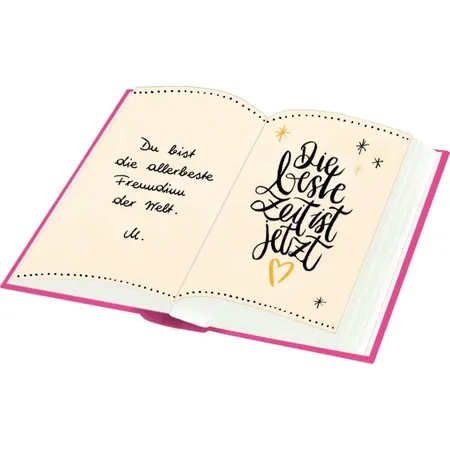 Du bist
die allerbeste
Freundinn
der Welt.
M.
Die
beste
Zeit ist
jetzt